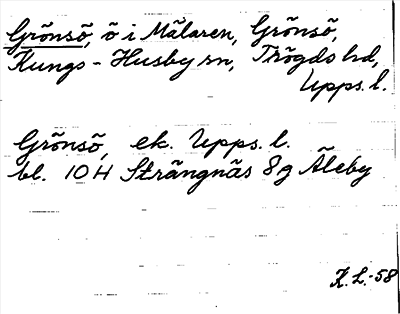 Grönsö, ö i Mälaren, Grönsö,
Kungs-Husby sn, Trögds hd,
Upps. l.
Grönsö, ek. Upps. l.
bl. 10 H Strängnäs 8g Åleby
K.L.-58